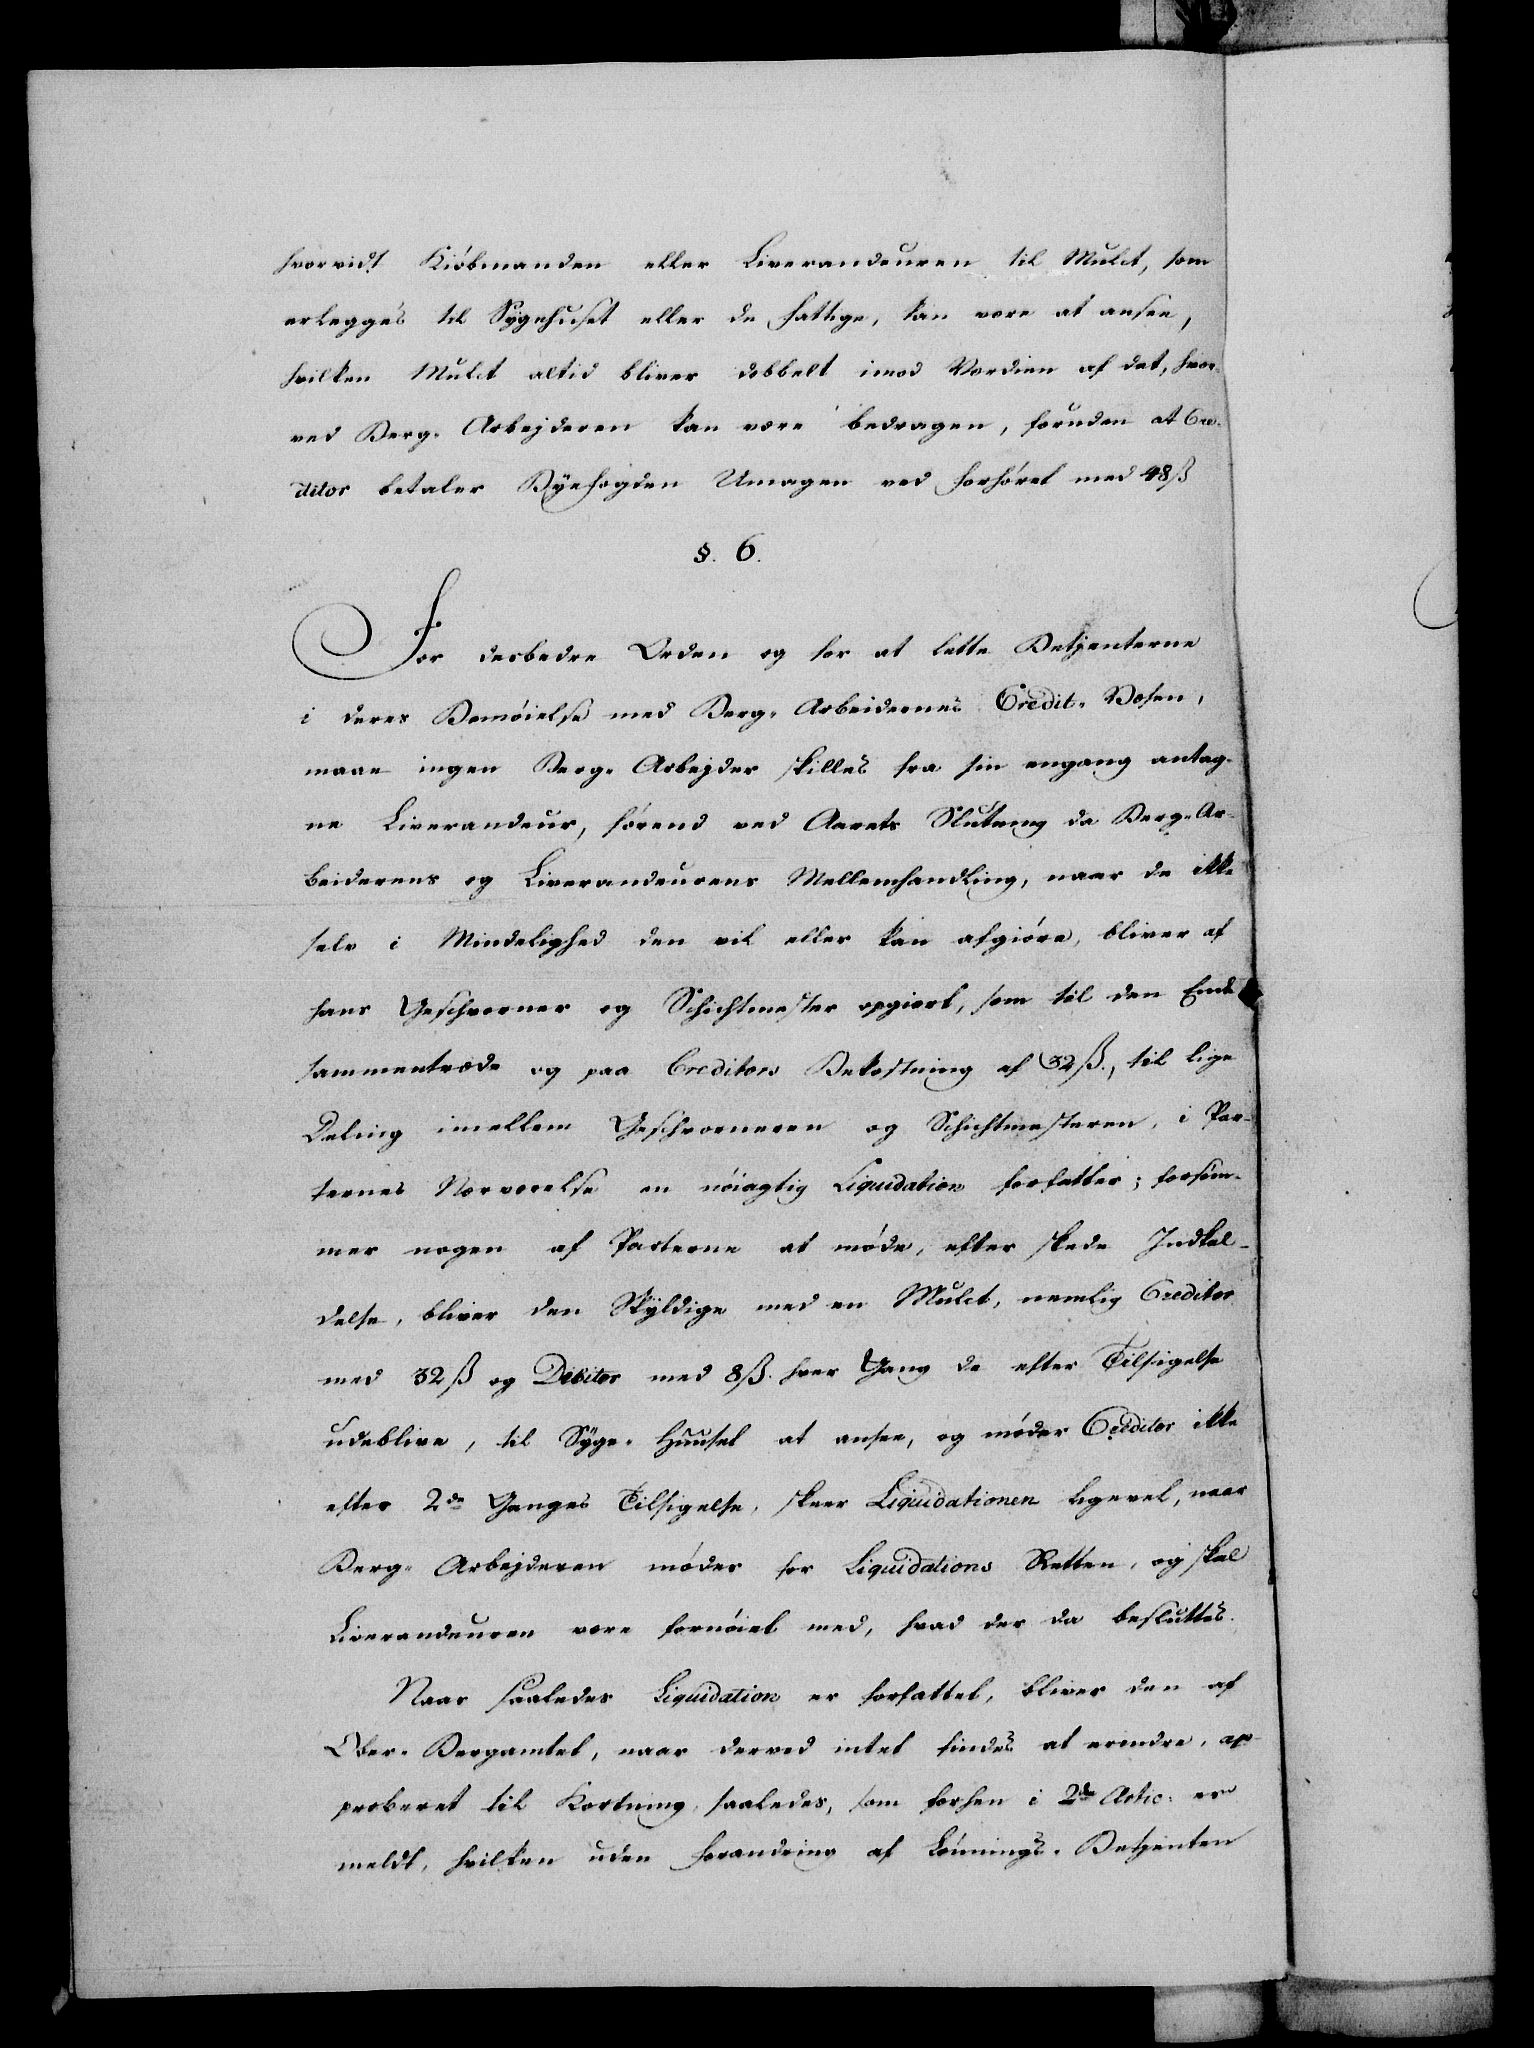 hvorvidt Kiöbmanden eller Liverandeuren til Mulct, som
erlegges til Sygehuset eller de fattige, kan være at ansee,
hvilken Mulct altid bliver dobbelt imod Værdien af det, hvor-
ved Berg-Arbejderen kan være bedragen, foruden at Cre-
ditor betaler Byefogden Umagen ved Forhöret med 48 ß
§. 6.
For desbedre Orden og for at lette Betjenterne
i deres Bemöielse med Berg-Arbeidernes Credit-Væsen,
maae ingen Berg-Arbejder skilles fra sin engang antag-
ne Liverandeur, förend ved Aarets Slutning da Berg-Ar-
beiderens og Liverandeurens Mellemhandling, naar de ikke
selv i Mindelighed den vil eller kan afgiöre, bliver af
hans Geschworner og Schichtmester opgiort, som til den Ende
sammentræde og paa Creditors Bekostning af 32 ß., til lige
Deling imellem Geschworneren og Schichtmesteren, i Par-
ternes Nærværelse en nöiagtig Liquidation forfatter; forsöm-
mer nogen af Parterne at möde, efter skede Indkal-
delse, bliver den Skyldige med en Mulct, nemlig Creditor
med 32 ß og Debitor med 8 ß. hver Gang de efter Tilsigelse
udeblive, til Syge-Huuset at ansee, og möder Creditor ikke
efter 2de Ganges Tilsigelse, skeer Liquidationen ligevel, naar
Berg-Arbejderen möder for Liquidations Retten, og skal
Liverandeuren være fornöiet med, hvad der da besluttes.
Naar saaledes Liquidation er forfattet, bliver den af
Ober-Bergamtet, naar derved intet findes at erindre, ap-
proberet til Kortning, saaledes, som forhen i 2de Artic. er
meldt, hvilken uden Forandring af Lönnings-Betjenten